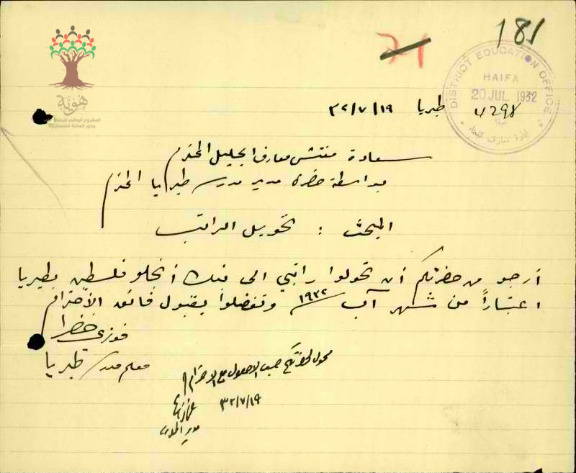 181
31
DISTRICT EDUCATION OFFICE
HAIFA
20 JUL 1932
4298
هوية
طبريا ٣٢/٧/١٩
سعادة مفتش معارف الجليل المحترم
بواسطة حضرة مدير مدرسة طبريا المحترم
المبحث : تحويل الراتب
أرجو من حضرتكم أن تحولوا راتبي الى بنك أنجلو فلسطين بطبريا
اعتباراً من شهر آب ١٩٣٢ وتفضلوا بقبول فائق الاحترام
فوزي خضرا
معلم مدرسة طبريا
محول لحضرتكم حسب الاصول مع الاحترام
٣٢/٧/١٩
مدير المدرسة